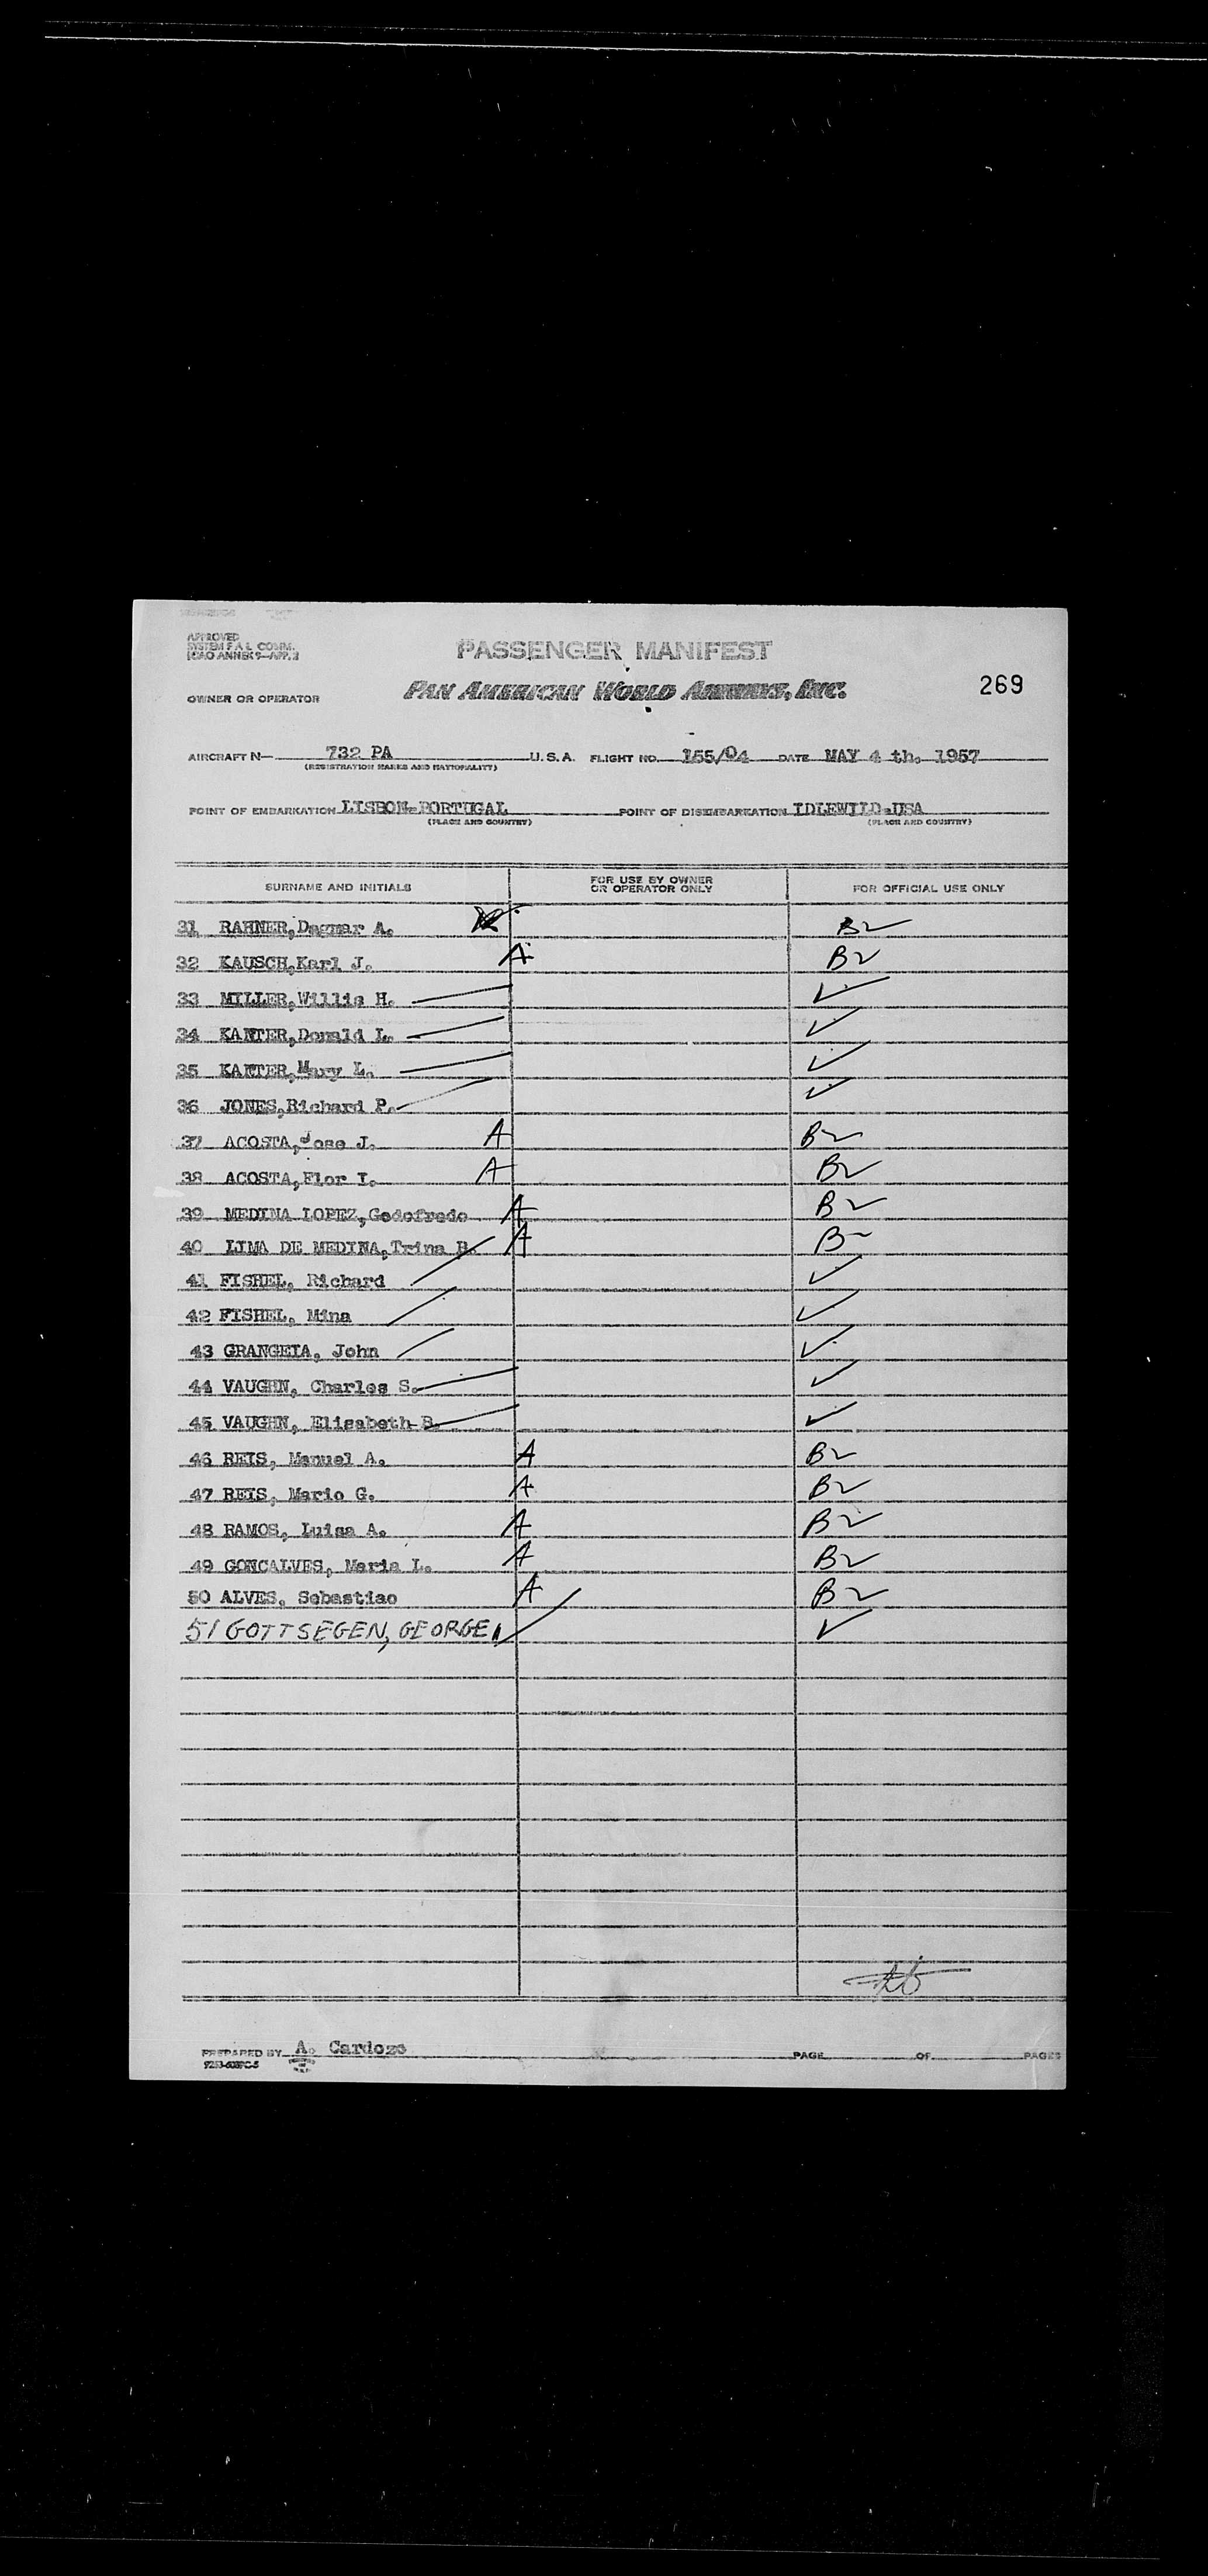 APPROVED
SYSTEM F.A.L. COMM.
ICAO ANNEX 9—APP. 3
PASSENGER MANIFEST
OWNER OR OPERATOR PAN AMERICAN WORLD AIRWAYS, INC. 269
AIRCRAFT N— 732 PA U.S.A. FLIGHT NO. 155/04 DATE MAY 4 th. 1957
(REGISTRATION MARKS AND NATIONALITY)
POINT OF EMBARKATION LISBON-PORTUGAL POINT OF DISEMBARKATION IDLEWILD-USA
(PLACE AND COUNTRY) (PLACE AND COUNTRY)
SURNAME AND INITIALS FOR USE BY OWNER OR OPERATOR ONLY FOR OFFICIAL USE ONLY
31 RAHNER,Dagmar A. B2
32 KAUSCH,Karl J. A B2
33 MILLER,Willis H. ✓
34 KANTER,Donald L. ✓
35 KANTER,Mary L. ✓
36 JONES,Richard P. ✓
37 ACOSTA,Jose J. A B2
38 ACOSTA,Flor I. A B2
39 MEDINA LOPEZ,Godofredo A B2
40 LIMA DE MEDINA,Trina B. A B2
41 FISHEL, Richard ✓
42 FISHEL, Mina ✓
43 GRANGEIA, John ✓
44 VAUGHN, Charles S. ✓
45 VAUGHN, Elisabeth B. ✓
46 REIS, Manuel A. A B2
47 REIS, Mario G. A B2
48 RAMOS, Luisa A. A B2
49 GONCALVES, Maria L. A B2
50 ALVES, Sebastiao A B2
51 GOTTSEGEN, GEORGE ✓
PREPARED BY A. Cardozo PAGE OF PAGES